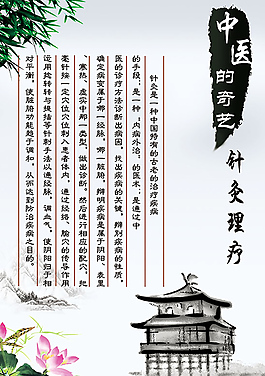 中医
的奇艺
针灸理疗
针灸是一种中国特有的古老的治疗疾病
的手段；是一种“内病外治”的医术；是通过中
医的诊疗方法诊断出病因，找出疾病的关键，辩别疾病的性质，
确定病变属于哪一经脉，哪一脏腑，辩明疾病是属于阴阳、表里
、寒热、虚实中那一类型，做出诊断。然后进行相应的配穴，把
毫针按一定穴位穴位刺入患者体内，通过经络、腧穴的传导作用
运用捻转与提插等针刺手法以通经脉，调血气，使阴阳归于相
对平衡，使脏腑功能趋于调和，从而达到防治疾病之目的。